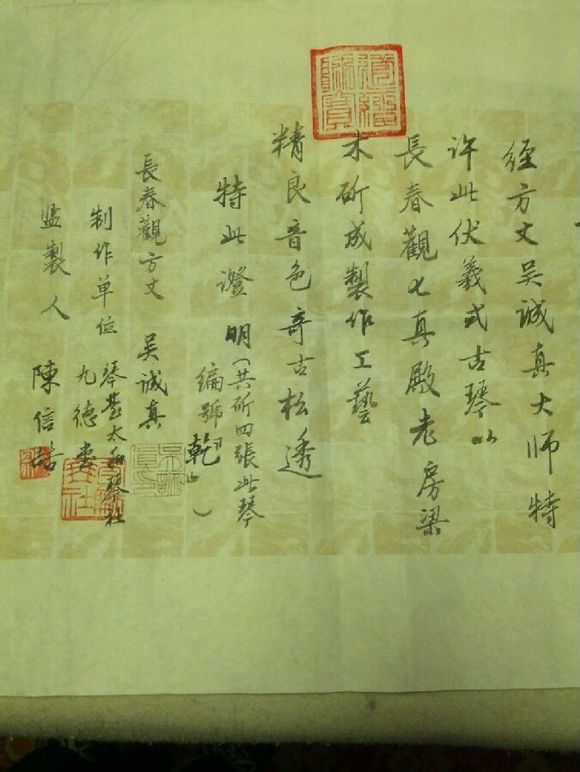 經方丈吳誠真大师特
许此伏羲式古琴以
長春觀七真殿老房梁
木斫成製作工藝
精良音色奇古松透
特此澄明(共斫四張此琴
編號「乾」)
長春觀方丈 吴誠真
制作单位 琴臺太和琴社
九德堂
监製人 陳信